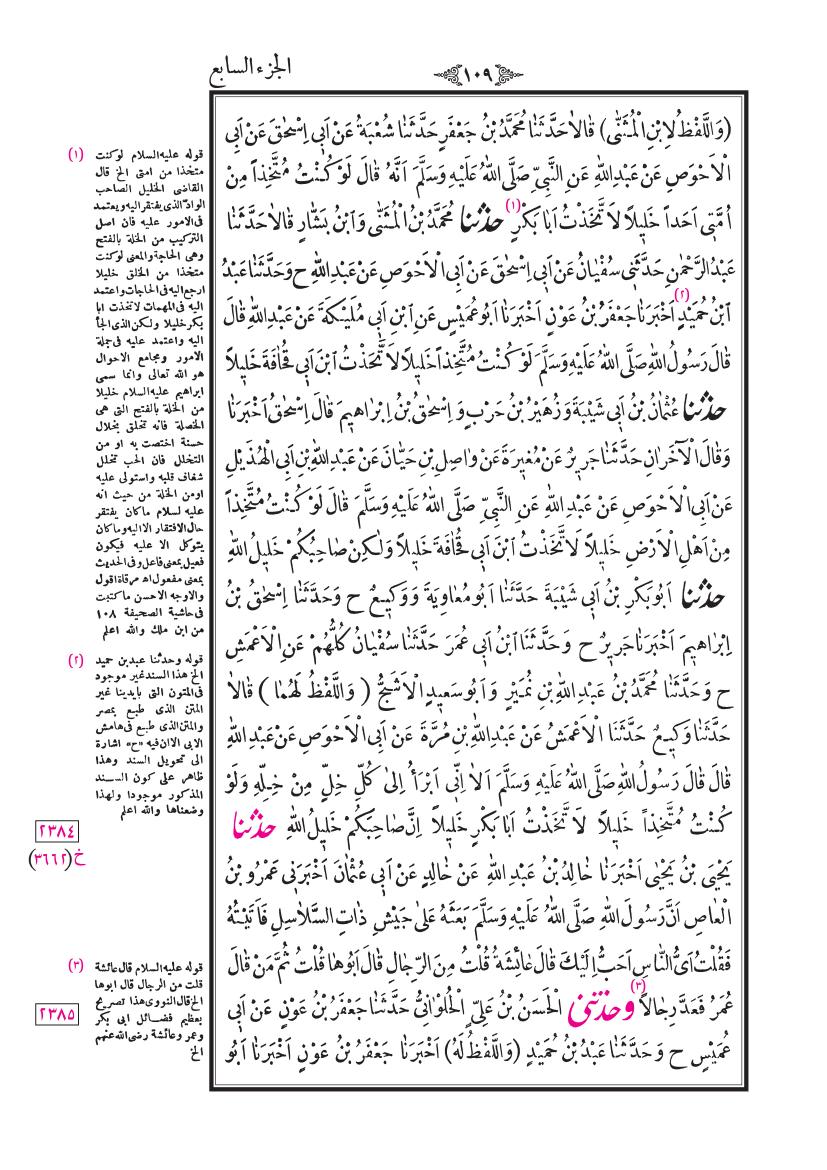 الجزء السابع
١٠٩
(وَاللَّفْظُ لِابْنِ الْمُثَنّٰى) قَالَا حَدَّثَنَا مُحَمَّدُ بْنُ جَعْفَرٍ حَدَّثَنَا شُعْبَةُ عَنْ اَبِى اِسْحٰقَ عَنْ اَبِى
الْاَحْوَصِ عَنْ عَبْدِ اللّٰهِ عَنِ النَّبِيِّ صَلَّى اللّٰهُ عَلَيْهِ وَسَلَّمَ اَنَّهُ قَالَ لَوْ كُنْتُ مُتَّخِذاً مِنْ
اُمَّتِى اَحَداً خَلِيلاً لَاتَّخَذْتُ اَبَا بَكْرٍ (١) حَدَّثَنَا مُحَمَّدُ بْنُ الْمُثَنّٰى وَابْنُ بَشَّارٍ قَالَا حَدَّثَنَا
عَبْدُ الرَّحْمٰنِ حَدَّثَنِى سُفْيَانُ عَنْ اَبِى اِسْحٰقَ عَنْ اَبِى الْاَحْوَصِ عَنْ عَبْدِ اللّٰهِ ح وَحَدَّثَنَا عَبْدُ
ابْنُ حُمَيْدٍ (٢) اَخْبَرَنَا جَعْفَرُ بْنُ عَوْنٍ اَخْبَرَنَا اَبُو عُمَيْسٍ عَنِ ابْنِ اَبِى مُلَيْكَةَ عَنْ عَبْدِ اللّٰهِ قَالَ
قَالَ رَسُولُ اللّٰهِ صَلَّى اللّٰهُ عَلَيْهِ وَسَلَّمَ لَوْ كُنْتُ مُتَّخِذاً خَلِيلاً لَاتَّخَذْتُ ابْنَ اَبِى قُحَافَةَ خَلِيلاً
حَدَّثَنَا عُثْمَانُ بْنُ اَبِى شَيْبَةَ وَزُهَيْرُ بْنُ حَرْبٍ وَاِسْحٰقُ بْنُ اِبْرَاهِيمَ قَالَ اِسْحٰقُ اَخْبَرَنَا
وَقَالَ الْآخَرَانِ حَدَّثَنَا جَرِيرٌ عَنْ مُغِيرَةَ عَنْ وَاصِلِ بْنِ حَيَّانَ عَنْ عَبْدِ اللّٰهِ بْنِ اَبِى الْهُذَيْلِ
عَنْ اَبِى الْاَحْوَصِ عَنْ عَبْدِ اللّٰهِ عَنِ النَّبِيِّ صَلَّى اللّٰهُ عَلَيْهِ وَسَلَّمَ قَالَ لَوْ كُنْتُ مُتَّخِذاً
مِنْ اَهْلِ الْاَرْضِ خَلِيلاً لَاتَّخَذْتُ ابْنَ اَبِى قُحَافَةَ خَلِيلاً وَلٰكِنْ صَاحِبُكُمْ خَلِيلُ اللّٰهِ
حَدَّثَنَا اَبُو بَكْرِ بْنُ اَبِى شَيْبَةَ حَدَّثَنَا اَبُو مُعَاوِيَةَ وَوَكِيعٌ ح وَحَدَّثَنَا اِسْحٰقُ بْنُ
اِبْرَاهِيمَ اَخْبَرَنَا جَرِيرٌ ح وَحَدَّثَنَا ابْنُ اَبِى عُمَرَ حَدَّثَنَا سُفْيَانُ كُلُّهُمْ عَنِ الْاَعْمَشِ
ح وَحَدَّثَنَا مُحَمَّدُ بْنُ عَبْدِ اللّٰهِ بْنِ نُمَيْرٍ وَاَبُو سَعِيدٍ الْاَشَجُّ (وَاللَّفْظُ لَهُمَا) قَالَا
حَدَّثَنَا وَكِيعٌ حَدَّثَنَا الْاَعْمَشُ عَنْ عَبْدِ اللّٰهِ بْنِ مُرَّةَ عَنْ اَبِى الْاَحْوَصِ عَنْ عَبْدِ اللّٰهِ
قَالَ قَالَ رَسُولُ اللّٰهِ صَلَّى اللّٰهُ عَلَيْهِ وَسَلَّمَ اَلَا اِنِّى اَبْرَأُ اِلٰى كُلِّ خِلٍّ مِنْ خِلِّهِ وَلَوْ
كُنْتُ مُتَّخِذاً خَلِيلاً لَاتَّخَذْتُ اَبَا بَكْرٍ خَلِيلاً اِنَّ صَاحِبَكُمْ خَلِيلُ اللّٰهِ حَدَّثَنَا
يَحْيَى بْنُ يَحْيٰى اَخْبَرَنَا خَالِدُ بْنُ عَبْدِ اللّٰهِ عَنْ خَالِدٍ عَنْ اَبِى عُثْمَانَ اَخْبَرَنِى عَمْرُو بْنُ
الْعَاصِ اَنَّ رَسُولَ اللّٰهِ صَلَّى اللّٰهُ عَلَيْهِ وَسَلَّمَ بَعَثَهُ عَلٰى جَيْشِ ذَاتِ السَّلَاسِلِ فَاَتَيْتُهُ
فَقُلْتُ اَىُّ النَّاسِ اَحَبُّ اِلَيْكَ قَالَ عَائِشَةُ قُلْتُ مِنَ الرِّجَالِ قَالَ اَبُوهَا قُلْتُ ثُمَّ مَنْ قَالَ
عُمَرُ فَعَدَّ رِجَالاً (٣) وَحَدَّثَنِى الْحَسَنُ بْنُ عَلِيٍّ الْحُلْوَانِىُّ حَدَّثَنَا جَعْفَرُ بْنُ عَوْنٍ عَنْ اَبِى
عُمَيْسٍ ح وَحَدَّثَنَا عَبْدُ بْنُ حُمَيْدٍ (وَاللَّفْظُ لَهُ) اَخْبَرَنَا جَعْفَرُ بْنُ عَوْنٍ اَخْبَرَنَا اَبُو
(١) قوله عليه السلام لوكنت
متخذا من امتى الخ قال
القاضى الخليل الصاحب
الواد الذى يفتقر اليه ويعتمد
فى الامور عليه فان اصل
التركيب من الخلة بالفتح
وهى الحاجة والمعنى لوكنت
متخذا من الخلق خليلا
ارجع اليه فى الحاجات واعتمد
اليه فى المهمات لاتخذت ابا
بكر خليلا ولكن الذى الجأ
اليه واعتمد عليه فى جملة
الامور ومجامع الاحوال
هو الله تعالى وانما سمى
ابراهيم عليه السلام خليلا
من الخلة بالفتح التى هى
الخصلة فانه تخلق بخلال
حسنة اختصت به او من
التخلل فان الحب تخلل
شغاف قلبه واستولى عليه
اومن الخلة من حيث انه
عليه لسلام ماكان يفتقر
حال الافتقار الا اليه وماكان
يتوكل الا عليه فيكون
فعيل بمعنى فاعل وفى الحديث
بمعنى مفعول اه مرقاة اقول
والاوجه الاحسن ماكتبت
فى حاشية الصحيفة ١٠٨
من ابن ملك والله اعلم
(٢) قوله وحدثنا عبد بن حميد
الخ هذا السند غير موجود
فى المتون التى بايدينا غير
المتن الذى طبع بمصر
والمتن الذى طبع فى هامش
الابى الا ان فيه «ح» اشارة
الى تحويل السند وهذا
ظاهر على كون السند
المذكور موجودا ولهذا
وضعناها والله اعلم
٢٣٨٤
خ (٣٦٦٢)
(٣) قوله عليه السلام قال عائشة
قلت من الرجال قال ابوها
الخ قال النووى هذا تصريح
بعظيم فضائل ابى بكر
وعمر وعائشة رضى الله عنهم
الخ
٢٣٨٥